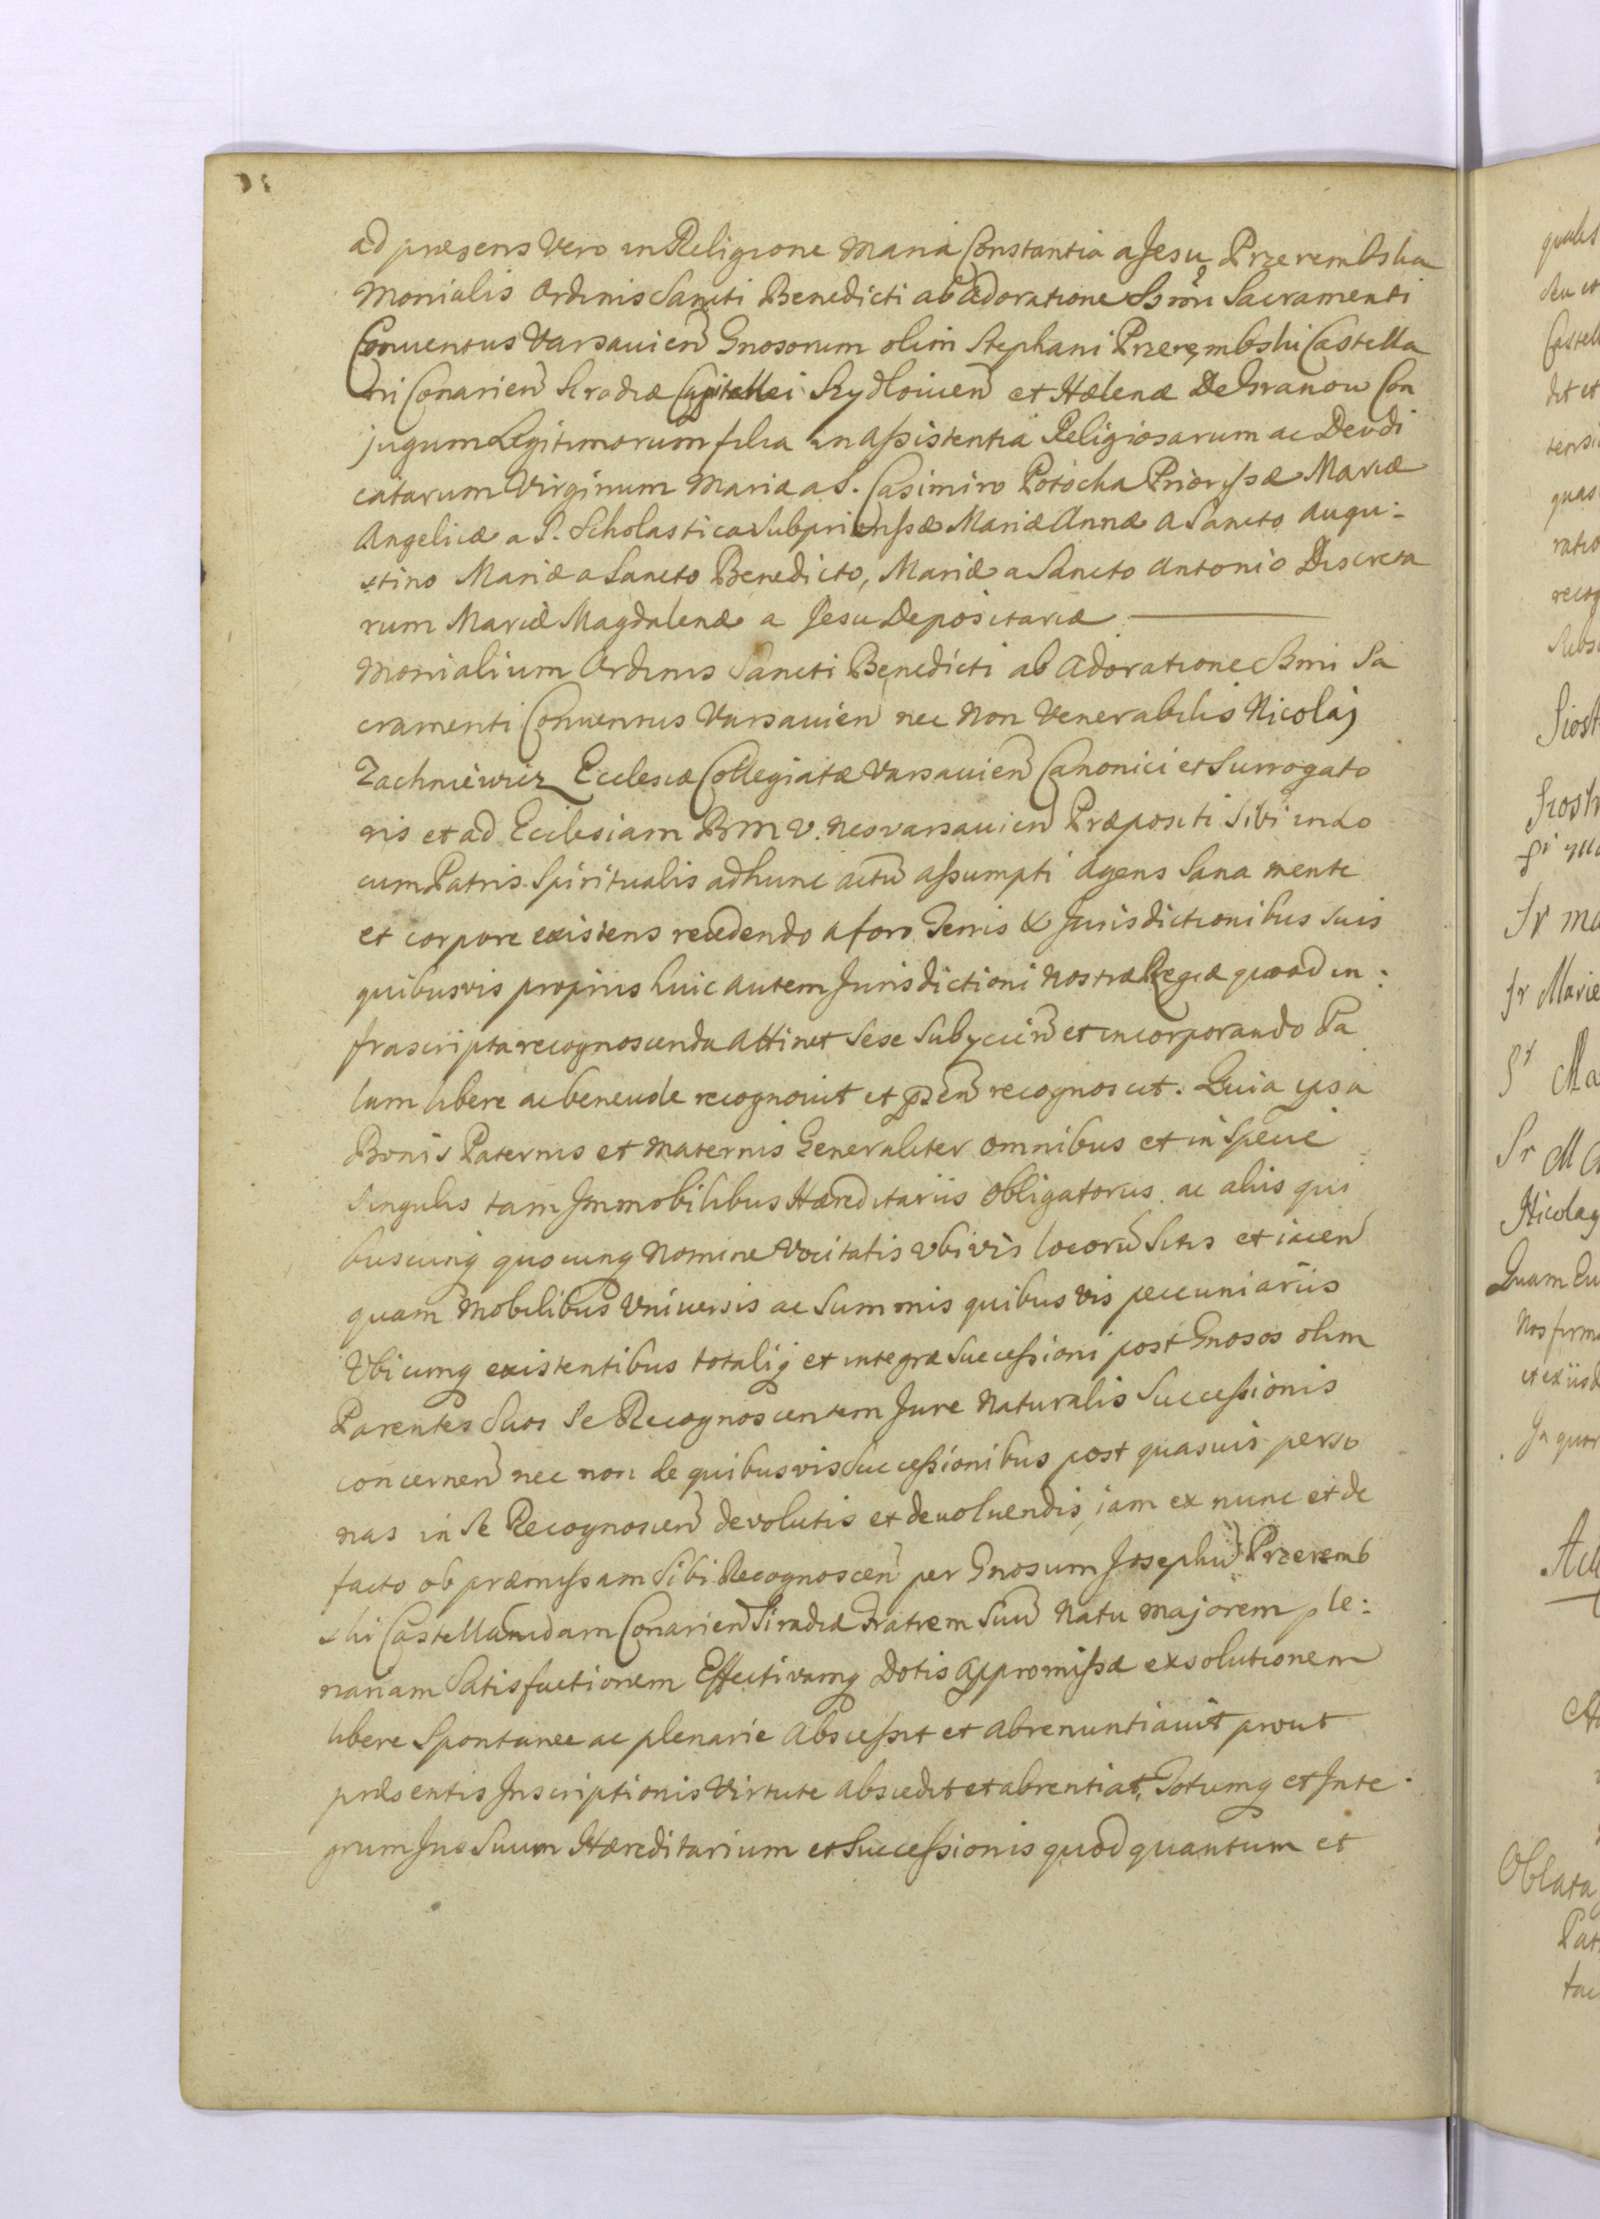 ad præsens Vero in Religione Maria Constantia a Jesu Przerembska
Monialis Ordinis Sancti Benedicti ab Adoratione SSmi Sacramenti
Conuentus Varsauien Gnosorum olim Stephani Przerembski Castella
ni Conarien Siradiæ Capitanei Szydlouien et Hælenæ De
jugum Legitimorum filia in Assistentia Religiosarum ac Deodi
catarum Virginum Mariæ a S. Casimiro Potocka Priorissæ Mariæ
Angelicæ a S. Scholastica Subpriorissæ Mariæ Annæ a Sancto Augu:
stino Mariæ a Sancto Benedicto, Mariæ a Sancto Antonio Discreta
rum Mariæ Magdalenæ a Jesu Depositariæ
Monialium Ordinis Sancti Benedicti ab Adoratione SSmi Sa
cramenti Conuentus Varsauien nec non Venerabilis Nicolaj
Zachniewicz Ecclesiæ Collegiatæ Varsauien Canonici et Surrogato
ris et ad Ecclesiam B M V. Neovarsauien Præpositi Sibi in lo
cum Patris Spiritualis ad hunc actu assumpti agens Sana mente
et corpore existens recedendo a foro Terris & Jurisdictionibus Suis
quibusvis proprijs huic autem Jurisdictioni Nostræ Regiæ quoad in:
frascripta recognoscenda Attinet Sese Subyciendo et incorporando Pa
lam libere ac beneuole recognouit et pzen recognoscit. Quia ipsa
Bonis Paternis et Maternis Generaliter omnibus et in Specie
Singulis tam Immobilibus Hæreditariis Obligatorijs ac alijs qui
buscunq quocunq Nomine Vocitatis Vbivis locoru Sitis et iacen
quam Mobilibus Vniuersis ac Summis quibus vis pecuniariis
Vbicunq existentibus totaliq et integræ Successioni post Gnosos olim
Parentes Suos Se Recognoscentem Jure Naturalis Successionis
concernen nec non de quibusvis Successionibus post quasuis perso
nas in Se Recognoscen devolutis et deuoluendis, iam ex nunc et de
facto ob præmissam Sibi Recognoscen per Gnosum Josephu Przeremb
ski Castellanidam Conarien Siradiæ Fratrem Suu Natu Majorem ple:
nariam Satisfactionem Effectivamq Dotis appromissæ exsolutionem
libere Spontanee ac plenarie Abscessit et abrenuntiauit prout
præsentis Inscriptionis Virtute abscedit et abrentiat, Totumq et Inte
grum Jus Suum Hæreditarium et Successionis quod quantum et